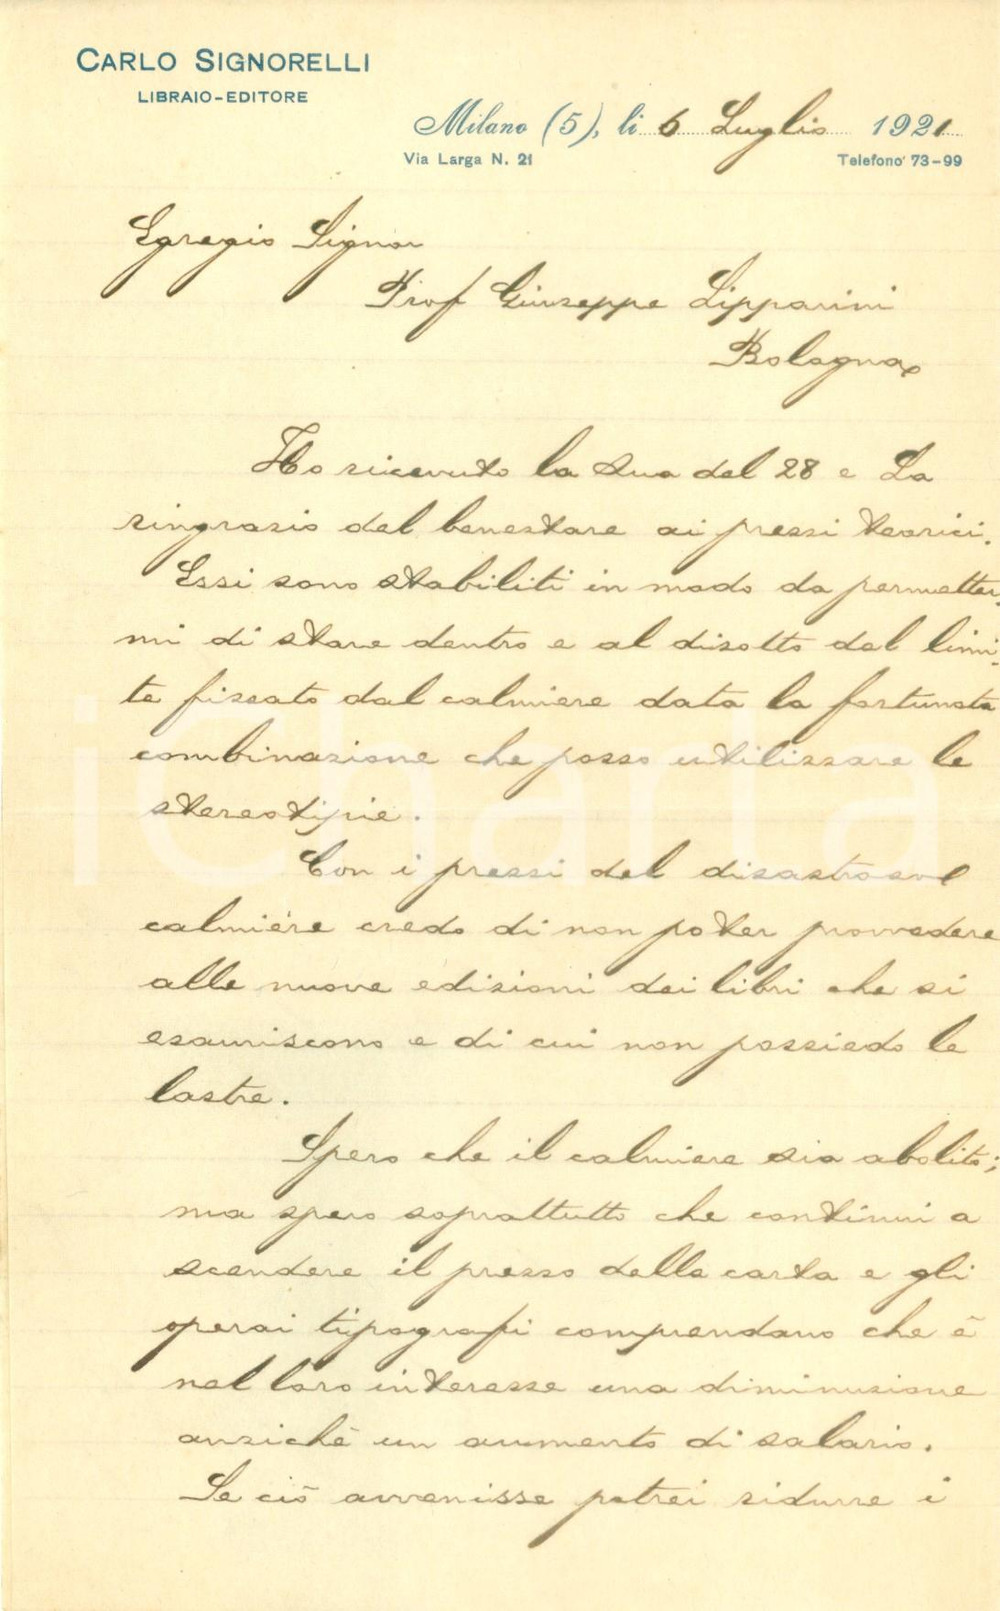 CARLO SIGNORELLI
LIBRAIO-EDITORE
Milano (5), li 6 Luglio 1921
Via Larga N. 21 Telefono 73-99
Egregio Signor
Prof Giuseppe Lipparini
Bologna
Ho ricevuto la Sua del 28 e La
ringrazio del benestare ai prezzi teorici.
Essi sono stabiliti in modo da permetter-
mi di stare dentro e al disotto del limi-
te fissato dal calmiere data la fortunata
combinazione che posso utilizzare le
stereotipie.
Con i prezzi del disastroso
calmiere credo di non poter provvedere
alle nuove edizioni dei libri che si
esauriscono e di cui non possiedo le
lastre.
Spero che il calmiere sia abolito;
ma spero soprattutto che continui a
scendere il prezzo della carta e gli
operai tipografi comprendano che è
nel loro interesse una diminuzione
anzichè un aumento di salario.
Se ciò avvenisse potrei ridurre i
iCharta